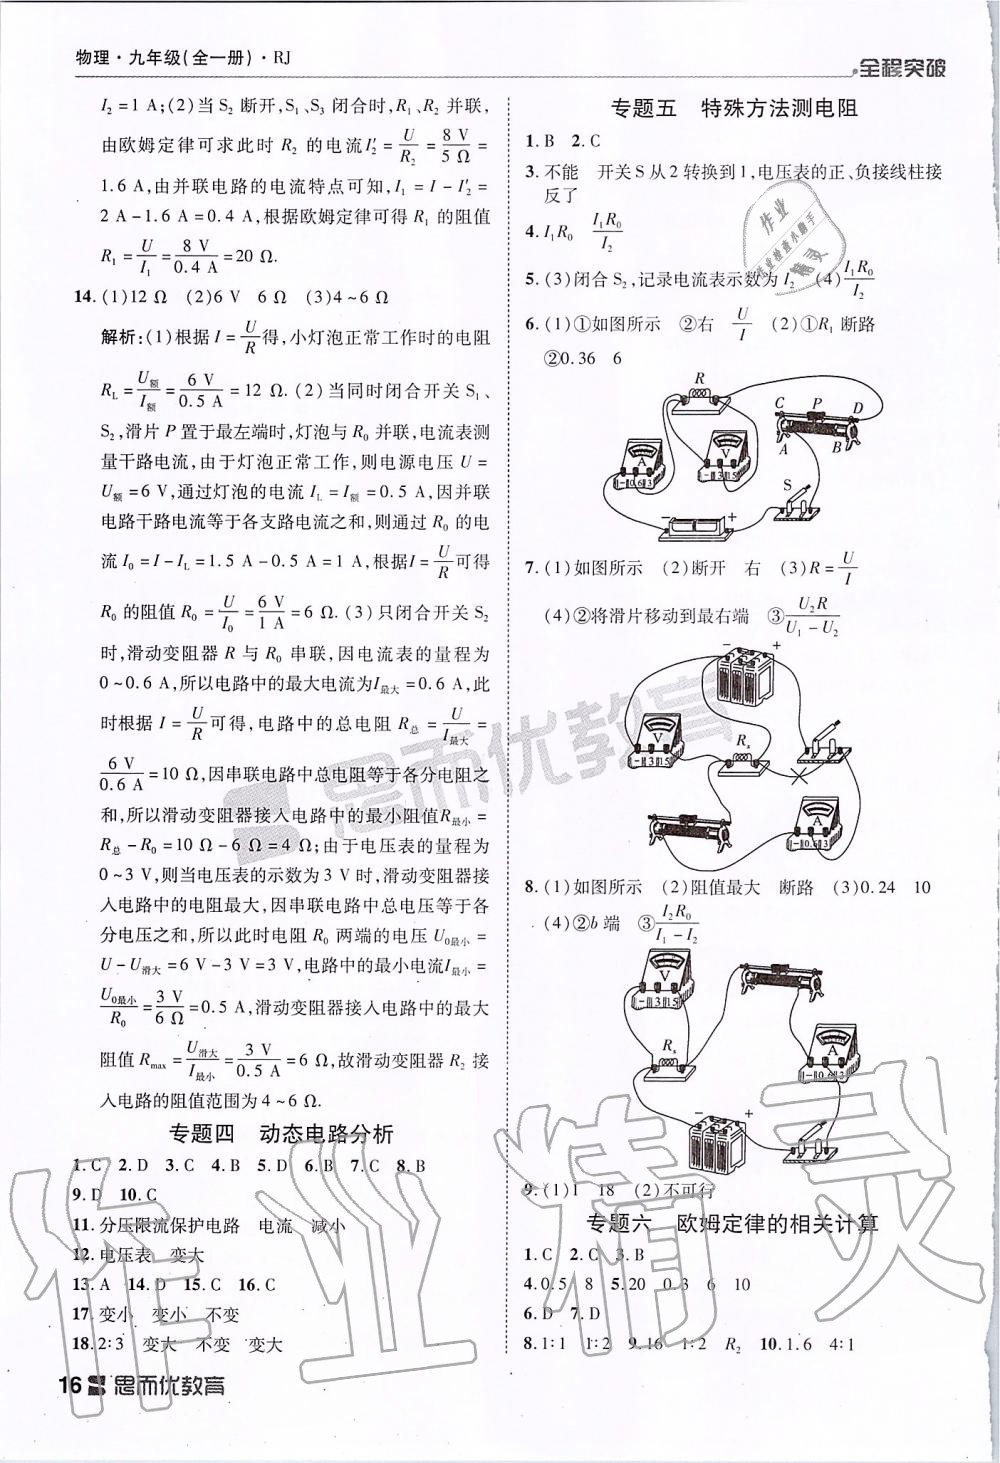 物理·九年级(全一册)·RJ
全程突破
I₂=1 A;(2)当 S₂ 断开,S₁、S₃ 闭合时,R₁、R₂ 并联,
由欧姆定律可求此时 R₂ 的电流I′₂=U/R₂=8 V/5 Ω=
1.6 A,由并联电路的电流特点可知,I₁=I-I′₂=
2 A-1.6 A=0.4 A,根据欧姆定律可得 R₁ 的阻值
R₁=U/I₁=8 V/0.4 A=20 Ω.
14.(1)12 Ω (2)6 V 6 Ω (3)4~6 Ω
解析:(1)根据 I=U/R得,小灯泡正常工作时的电阻
R_L=U额/I额=6 V/0.5 A=12 Ω.(2)当同时闭合开关 S₁、
S₂,滑片 P 置于最左端时,灯泡与 R₀ 并联,电流表测
量干路电流,由于灯泡正常工作,则电源电压 U=
U额=6 V,通过灯泡的电流 I_L=I额=0.5 A,因并联
电路干路电流等于各支路电流之和,则通过 R₀ 的电
流 I₀=I-I_L=1.5 A-0.5 A=1 A,根据I=U/R可得
R₀ 的阻值 R₀=U/I₀=6 V/1 A=6 Ω.(3)只闭合开关 S₂
时,滑动变阻器 R 与 R₀ 串联,因电流表的量程为
0~0.6 A,所以电路中的最大电流为I最大=0.6 A,此
时根据 I=U/R可得,电路中的总电阻 R总=U/I最大=
6 V/0.6 A=10 Ω,因串联电路中总电阻等于各分电阻之
和,所以滑动变阻器接入电路中的最小阻值R最小=
R总-R₀=10 Ω-6 Ω=4 Ω;由于电压表的量程为
0~3 V,则当电压表的示数为 3 V 时,滑动变阻器接
入电路中的电阻最大,因串联电路中总电压等于各
分电压之和,所以此时电阻 R₀ 两端的电压 U₀最小=
U-U滑大=6 V-3 V=3 V,电路中的最小电流I最小=
U₀最小/R₀=3 V/6 Ω=0.5 A,滑动变阻器接入电路中的最大
阻值 Rmax=U滑大/I最小=3 V/0.5 A=6 Ω,故滑动变阻器 R₂ 接
入电路的阻值范围为 4~6 Ω.
专题四 动态电路分析
1.C 2.D 3.C 4.B 5.D 6.B 7.C 8.B
9.D 10.C
11.分压限流保护电路 电流 减小
12.电压表 变大
13.A 14.D 15.C 16.C
17.变小 变小 不变
18.2:3 变大 不变 变大
16 思而优教育
专题五 特殊方法测电阻
1.B 2.C
3.不能 开关 S 从 2 转换到 1,电压表的正、负接线柱接
反了
4.I₁R₀ I₁R₀/I₂
5.(3)闭合 S₂,记录电流表示数为 I₂ (4)I₁R₀/I₂
6.(1)①如图所示 ②右 U/I (2)①R₁ 断路
②0.36 6
R
C P D
A V A B
- 0.6 3 - 3 15 S
- +
7.(1)如图所示 (2)断开 右 (3)R=U/I
(4)②将滑片移动到最右端 ③U₂R/(U₁-U₂)
- +
V
- 3 15 Rₓ
A
- 0.6 3
8.(1)如图所示 (2)阻值最大 断路 (3)0.24 10
(4)②b 端 ③I₂R₀/(I₁-I₂)
V
- 3 15
Rₓ A
- 0.6 3
- +
9.(1)1 18 (2)不可行
专题六 欧姆定律的相关计算
1.C 2.C 3.B
4.0.5 8 5.20 0.3 6 10
6.D 7.D
8.1:1 1:2 9.16 1:2 R₂ 10.1.6 4:1
思而优教育
作业精灵
作业
作业检查小助手
精灵